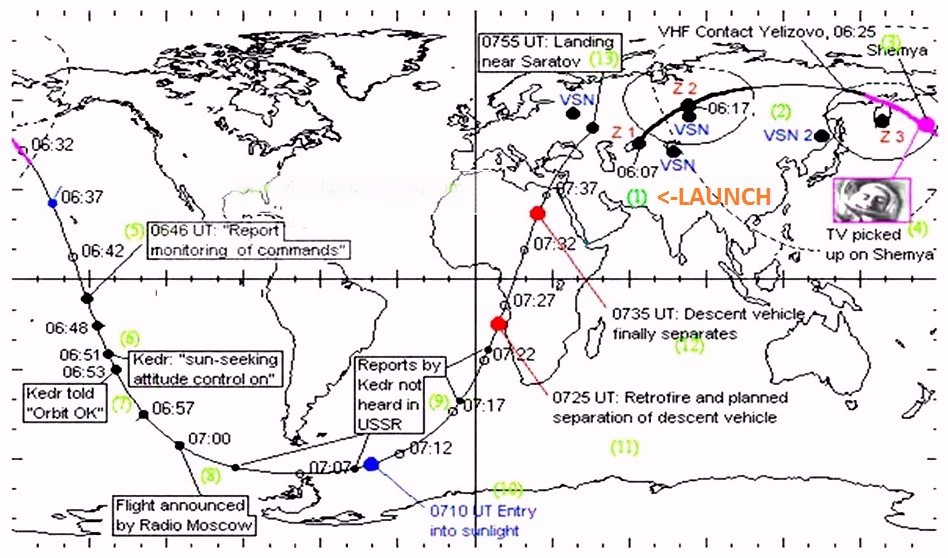 VHF Contact Yelizovo, 06:25
(3)
Shemya
0755 UT: Landing
near Saratov
(13)
VSN
Z 2
06:17
(2)
Z 1
VSN
VSN 2
Z 3
06:32
06:07
VSN
06:37
07:37
(1) <-LAUNCH
TV picked
up on Shemya
(4)
(5)
0646 UT: "Report
monitoring of commands"
06:42
07:32
07:27
06:48
(6)
0735 UT: Descent vehicle
finally separates
(12)
06:51
06:53
Kedr: "sun-seeking
attitude control on"
07:22
Reports by
Kedr not
heard in
USSR
Kedr told
"Orbit OK"
(7)
06:57
(9)
07:17
0725 UT: Retrofire and planned
separation of descent vehicle
07:00
07:12
(11)
(8)
07:07
Flight announced
by Radio Moscow
(10)
0710 UT Entry
into sunlight